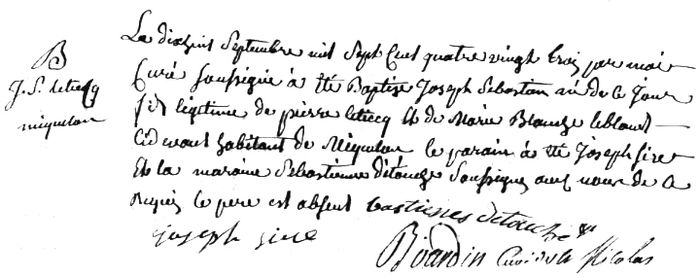 B
J. S. letecq
miquelon
Le dix huit Septembre mil Sept Cent quatre vingt trois par moi
Curé Soussigné à été Baptizé Joseph Sebastien né de ce jour
fils legitime de pierre letecq et de Marie Blanche leblanc
cidevant habitant de Miquelon le parain à été Joseph Giret
Et la maraine Sebastienne Détouche Soussignés avec nous de ce
Requis le pere est absent bastienes detouche
joseph gire
Bourdin Curé de St Nicolas